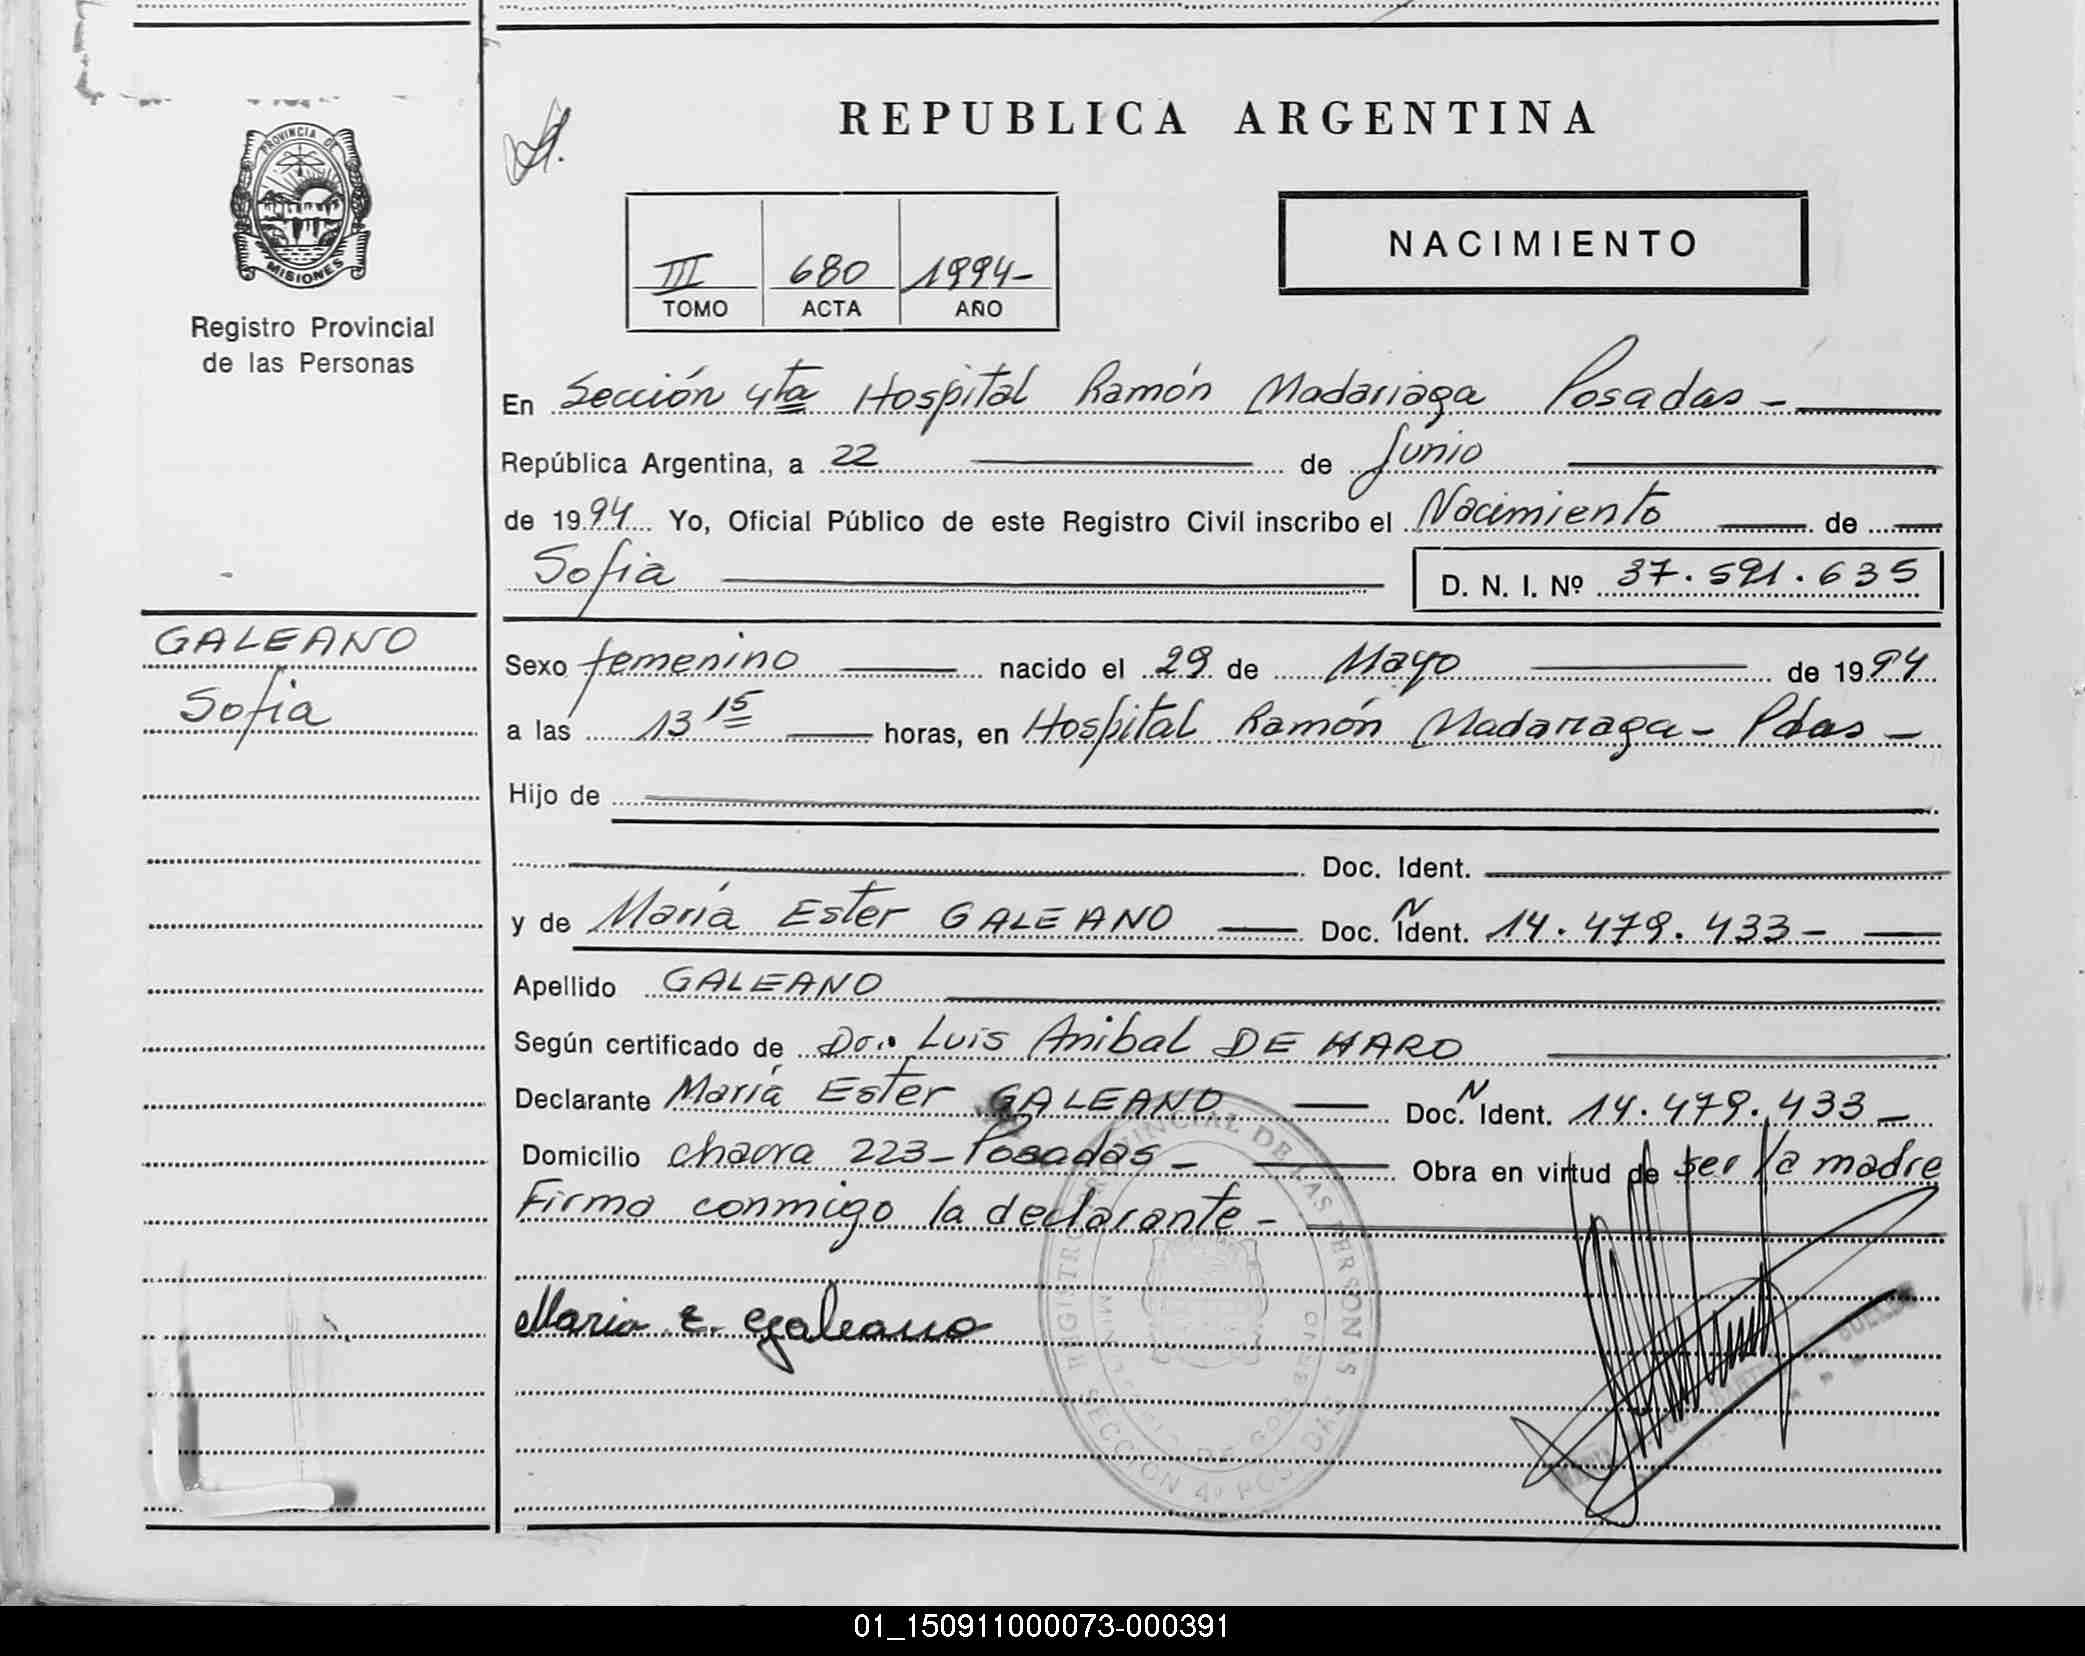 REPUBLICA ARGENTINA
PROVINCIA DE
MISIONES
Registro Provincial
de las Personas
III 680 1994-
TOMO ACTA AÑO
NACIMIENTO
En Sección 4ta Hospital Ramón Madariaga Posadas -
República Argentina, a 22 de Junio
de 1994 Yo, Oficial Público de este Registro Civil inscribo el Nacimiento de
Sofia D. N. I. Nº 37.591.635
GALEANO
Sofia
Sexo femenino nacido el 29 de Mayo de 1994
a las 13 15 horas, en Hospital Ramón Madariaga - Pdas -
Hijo de
Doc. Ident.
y de María Ester GALEANO Doc. N Ident. 14.479.433 -
Apellido GALEANO
Según certificado de Dr. Luis Anibal DE HARO
Declarante María Ester GALEANO Doc. N Ident. 14.479.433 -
Domicilio chacra 223 - Posadas - Obra en virtud de ser la madre
Firma conmigo la declarante -
Maria E. Galeano
REGISTRO PROVINCIAL DE LAS PERSONAS
MINISTERIO DE GOBIERNO
SECCION 4º POSADAS
01_150911000073-000391